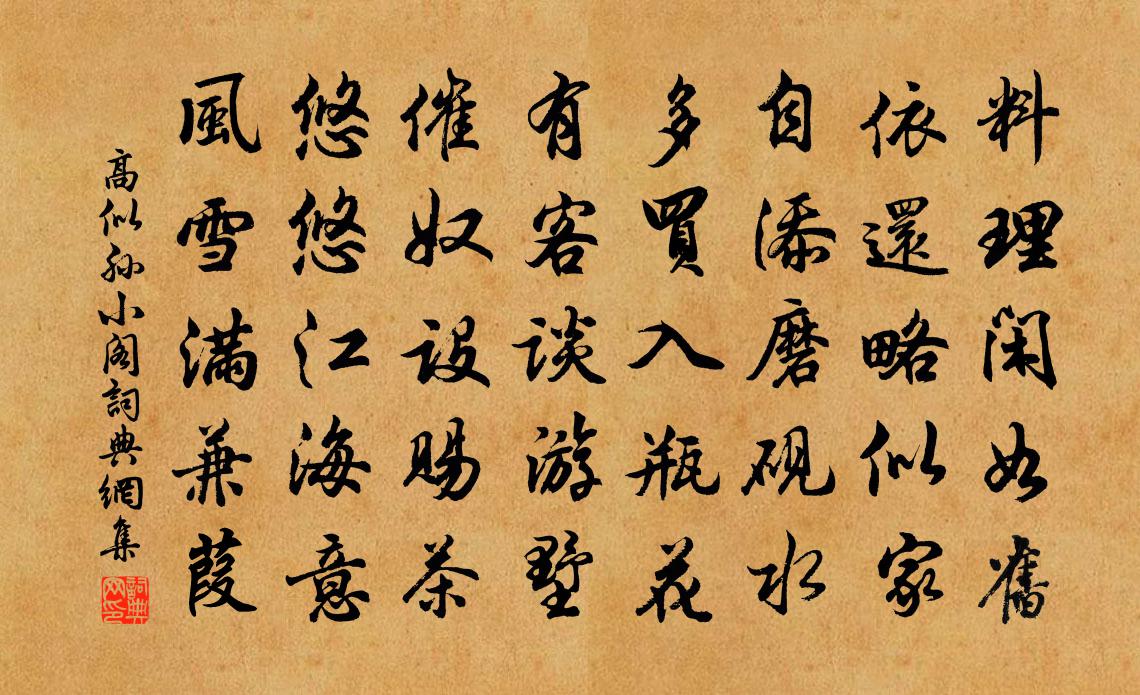 料理閑如舊
依還略似家
自添磨硯水
多買入瓶花
有客談游墅
催奴設賜茶
悠悠江海意
風雪滿兼葭
高似孫小閣詞典網集
詞典網印